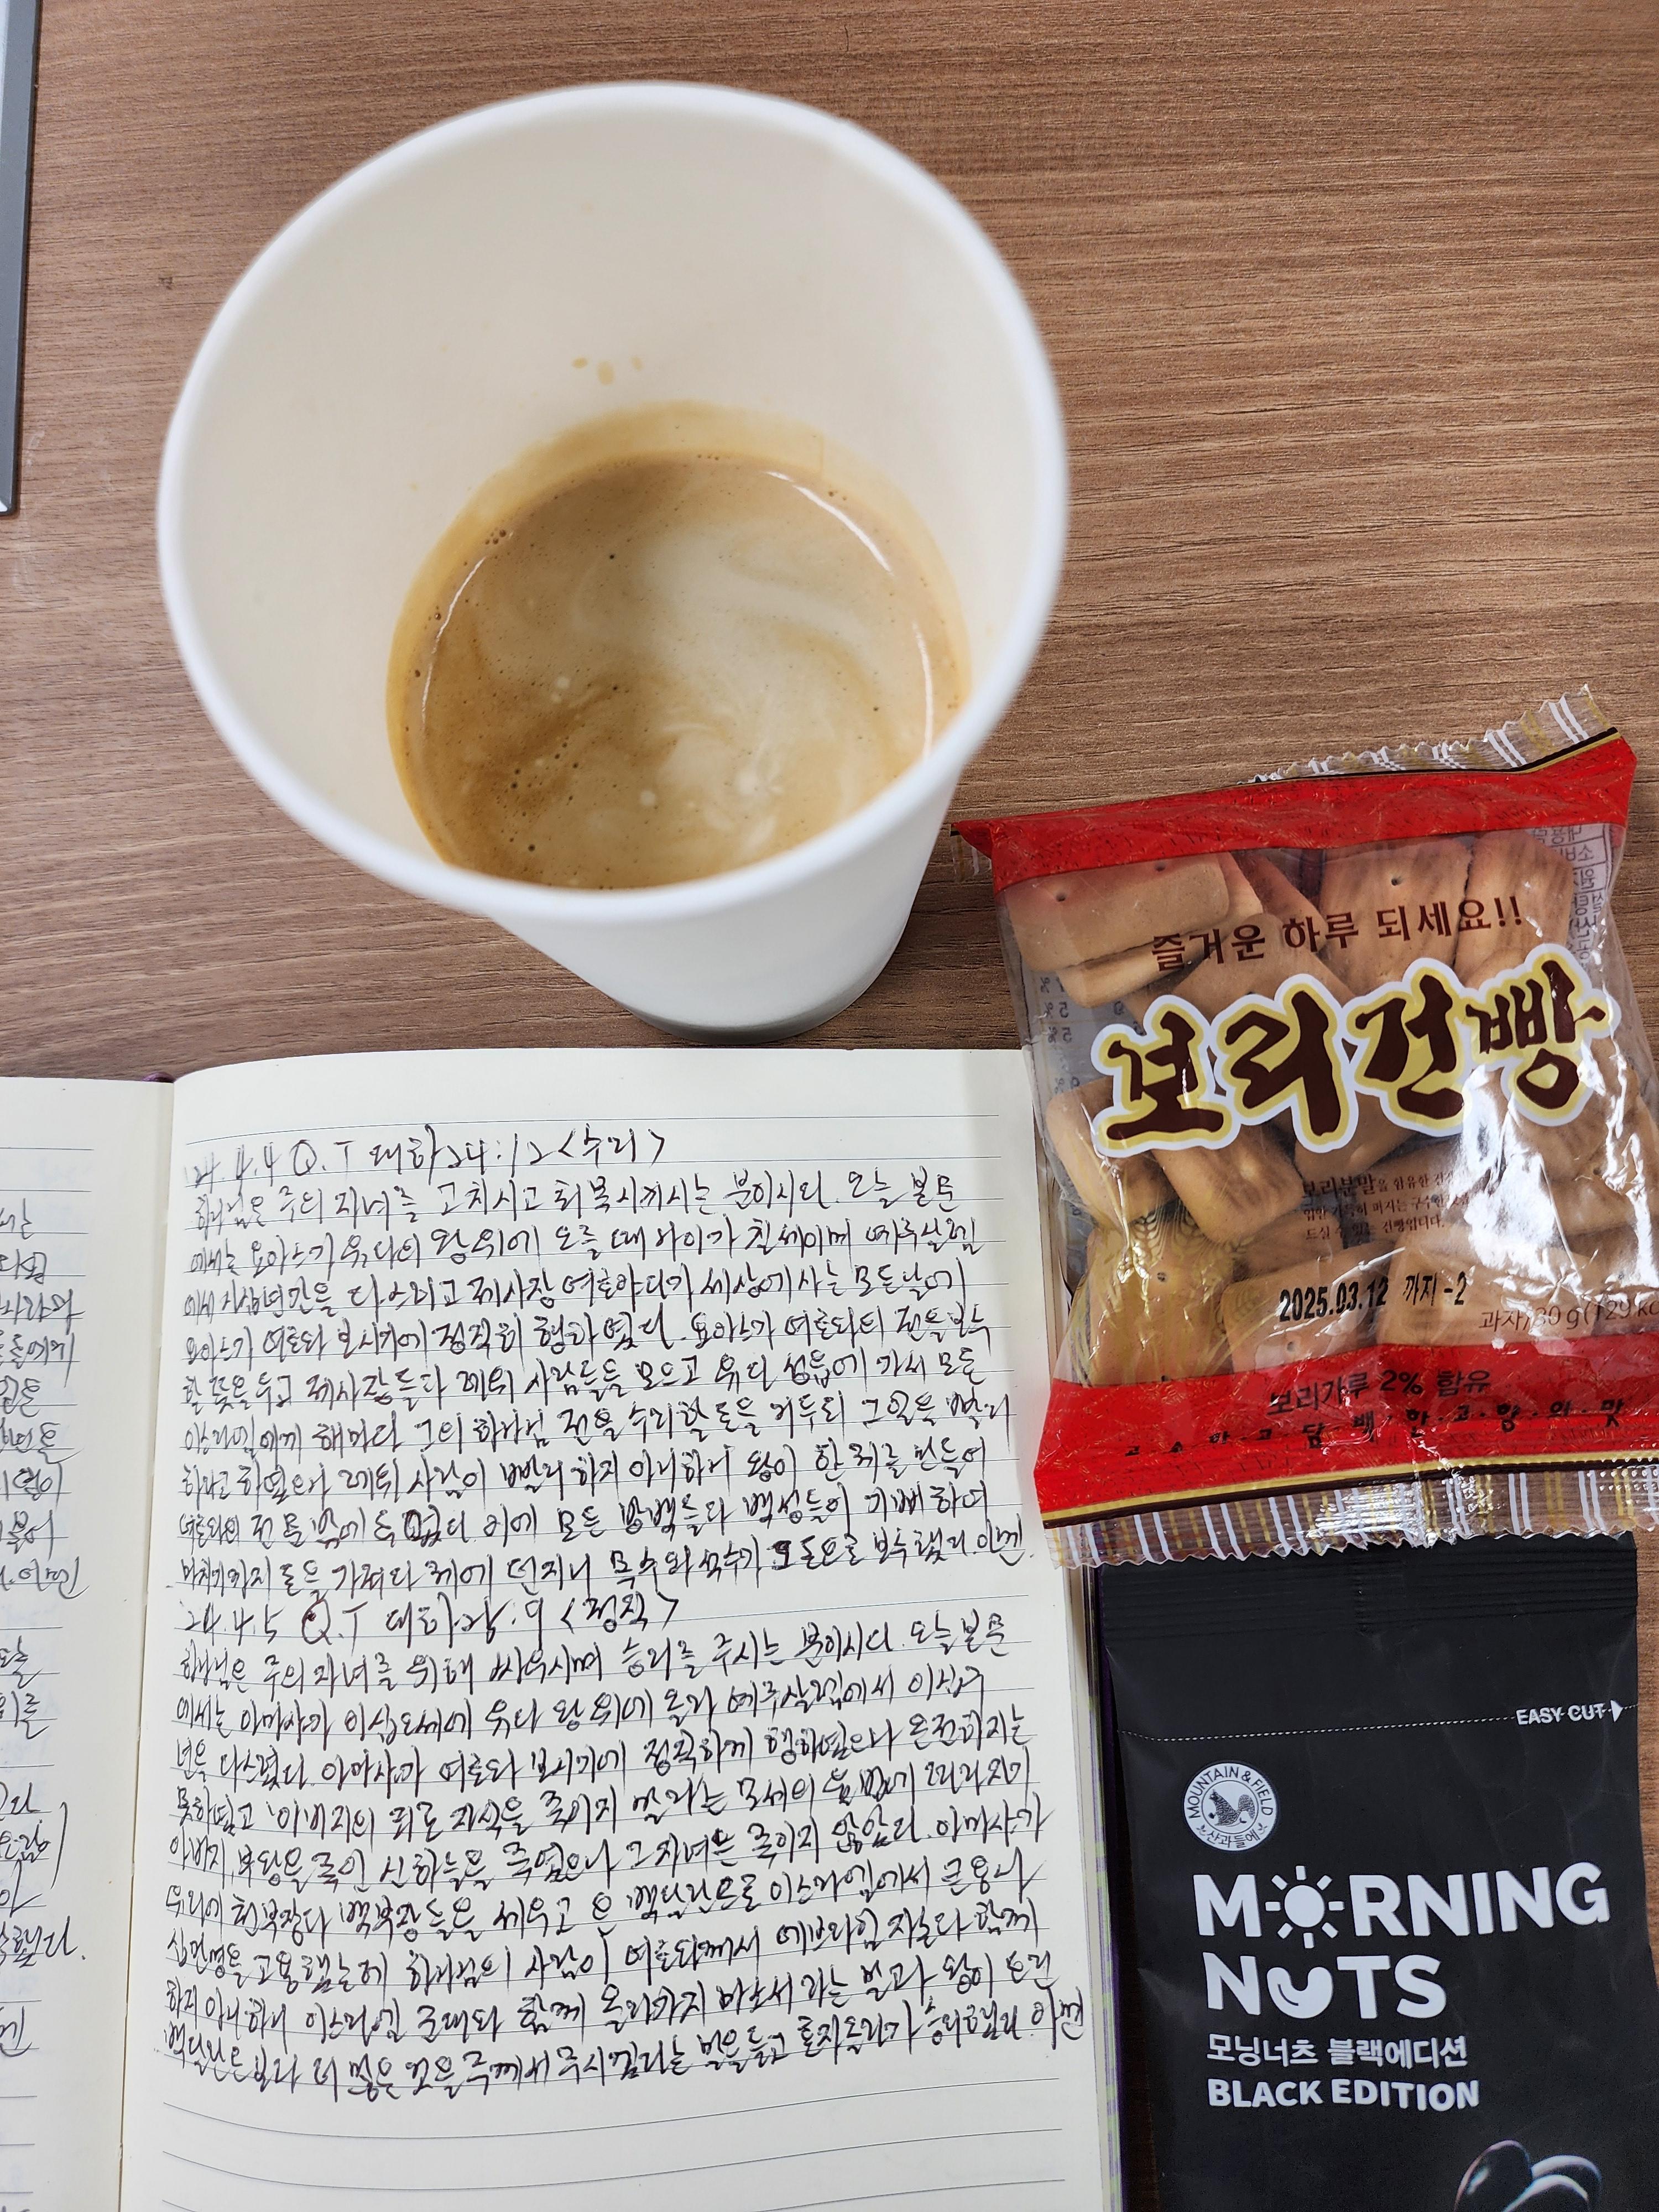 '24.4.4 Q.T 대하24:12 <수리>
하나님은 주의 자녀를 고치시고 회복시키시는 분이시다. 오늘 본문
에서는 요아스가 유다의 왕위에 오를 때 나이가 칠세이며 예루살렘
에서 사십년간을 다스리고 제사장 여호야다가 세상에 사는 모든날에
요아스가 여호와 보시기에 정직히 행하였다. 요아스가 여호와의 전을 보수
할 뜻을 두고 제사장들과 레위 사람들을 모으고 유다 성읍에 가서 모든
이스라엘에게 해마다 그의 하나님 전을 수리할 돈을 거두되 그 일을 빨리
하라고 하였으나 레위 사람이 빨리 하지 아니하니 왕이 한 궤를 만들어
여호와의 전 문 밖에 두었다. 이에 모든 방백들과 백성들이 기뻐하며
마치기까지 돈을 가져다 궤에 던지니 목수와 석수가 그 돈으로 보수했다. 아멘.
24.4.5 Q.T 대하25:9 <정직>
하나님은 주의 자녀를 위해 싸우시며 승리를 주시는 분이시다. 오늘 본문
에서는 아마샤가 이십오세에 유다 왕위에 올라 예루살렘에서 이십구
년을 다스렸다. 아마샤가 여호와 보시기에 정직하게 행하였으나 온전하지는
못하였고 아버지의 죄로 자식을 죽이지 말라는 모세의 율법에 따라 자기
아버지 부왕을 죽인 신하들을 죽였으나 그 자녀는 죽이지 않았다. 아마샤가
유다에 천부장과 백부장들을 세우고 은 백달란트로 이스라엘에서 큰 용사
십만명을 고용했는데 하나님의 사람이 여호와께서 에브라임 자손과 함께
하지 아니하니 이스라엘 군대와 함께 올라가지 마소서 라는 말과 왕이 쓰신
백달란트보다 더 많은 것을 주께서 주시겠다는 말을 듣고 돌려가 승리했다. 아멘
즐거운 하루 되세요!!
보리건빵
보리분말을 함유한
드실 수 있는 건빵입니다.
2025.03.12 까지 -2
과자/30g(129kc
보리가루 2% 함유
고소하고 담백한 고향의 맛
EASY CUT
MOUNTAIN & FIELD
산과들에
MORNING
NUTS
모닝너츠 블랙에디션
BLACK EDITION